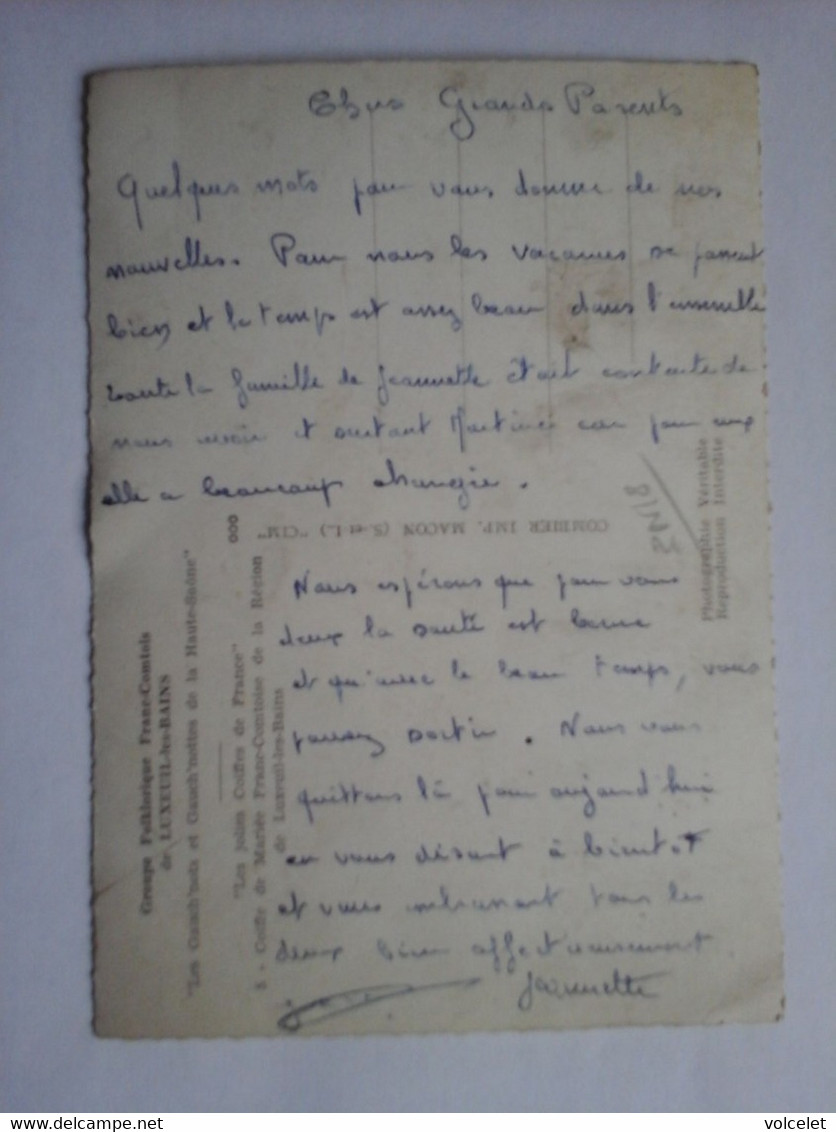 Chers Grands Parents
Quelques mots pour vous donner de nos
nouvelles. Pour nous les vacances se passent
bien et le temps est assez beau dans l'ensemble
toute la famille de Jeannette était contente de
nous revoir et surtout Martine car pour eux
elle a beaucoup changée.
Nous espérons que pour vous
deux la santé est bonne
et qu'avec le beau temps, vous
pouvez sortir. Nous vous
quittons là pour aujourd'hui
en vous disant à bientot
et vous embrassant tous les
deux bien affectueusement
Jeannette
Groupe Folklorique Franc-Comtois
de LUXEUIL-les-BAINS
"Les Gauch'nots et Gauch'nottes de la Haute-Saône"
"Les jolies Coiffes de France"
8 - Coiffe de Mariée Franc-Comtoise de la Région
de Luxeuil-les-Bains
000
COMBIER IMP. MACON (S.-et-L.) "CIM"
Photographie Véritable
Reproduction Interdite
delcampe.net
volcelet